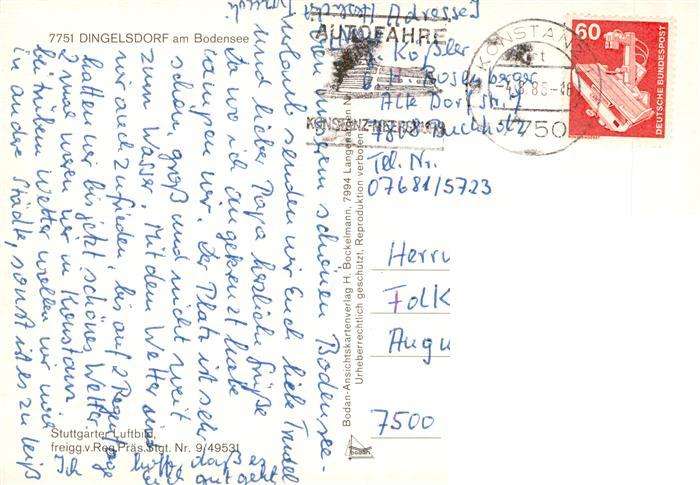 7751 DINGELSDORF am Bodensee
Von unserem schönen Bodensee-
urlaub senden wir Euch liebe Trudel
und lieber Papa herzliche Grüße
Da wo ich angekreuzt habe
campen wir. Der Platz ist sehr
schön, groß und nicht weit
zum Wasser. Mit dem Wetter sind
wir auch zufrieden, bis auf 2 Regentage
hatten wir bis jetzt schönes Wetter.
2 mal waren wir in Konstanz
bei trübem Wetter wollen wir mal
in andere Städte, sonst ist es zu heiß
Ich hoffe, daß es
Euch gut geht
Stuttgarter Luftbild,
freigg.v.Reg.Präs.Stgt. Nr. 9/49531
Bodan-Ansichtskartenverlag H. Bockelmann, 7994 Langenargen
Urheberrechtlich geschützt, Reproduktion verboten
Adresse
AUTOFÄHRE
KONSTANZ-MEERSBURG
KONSTANZ
7750
60
DEUTSCHE BUNDESPOST
Koßler
Rosenberger
Alte Dorfstr. 7
7808 Buchholz
Tel. Nr.
07681/5723
Herrn
Folk
Augu
7500